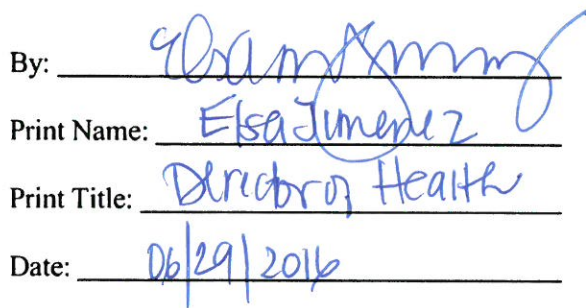 By:
Print Name: Elsa Jimenez
Print Title: Director of Health
Date: 06/29/2016